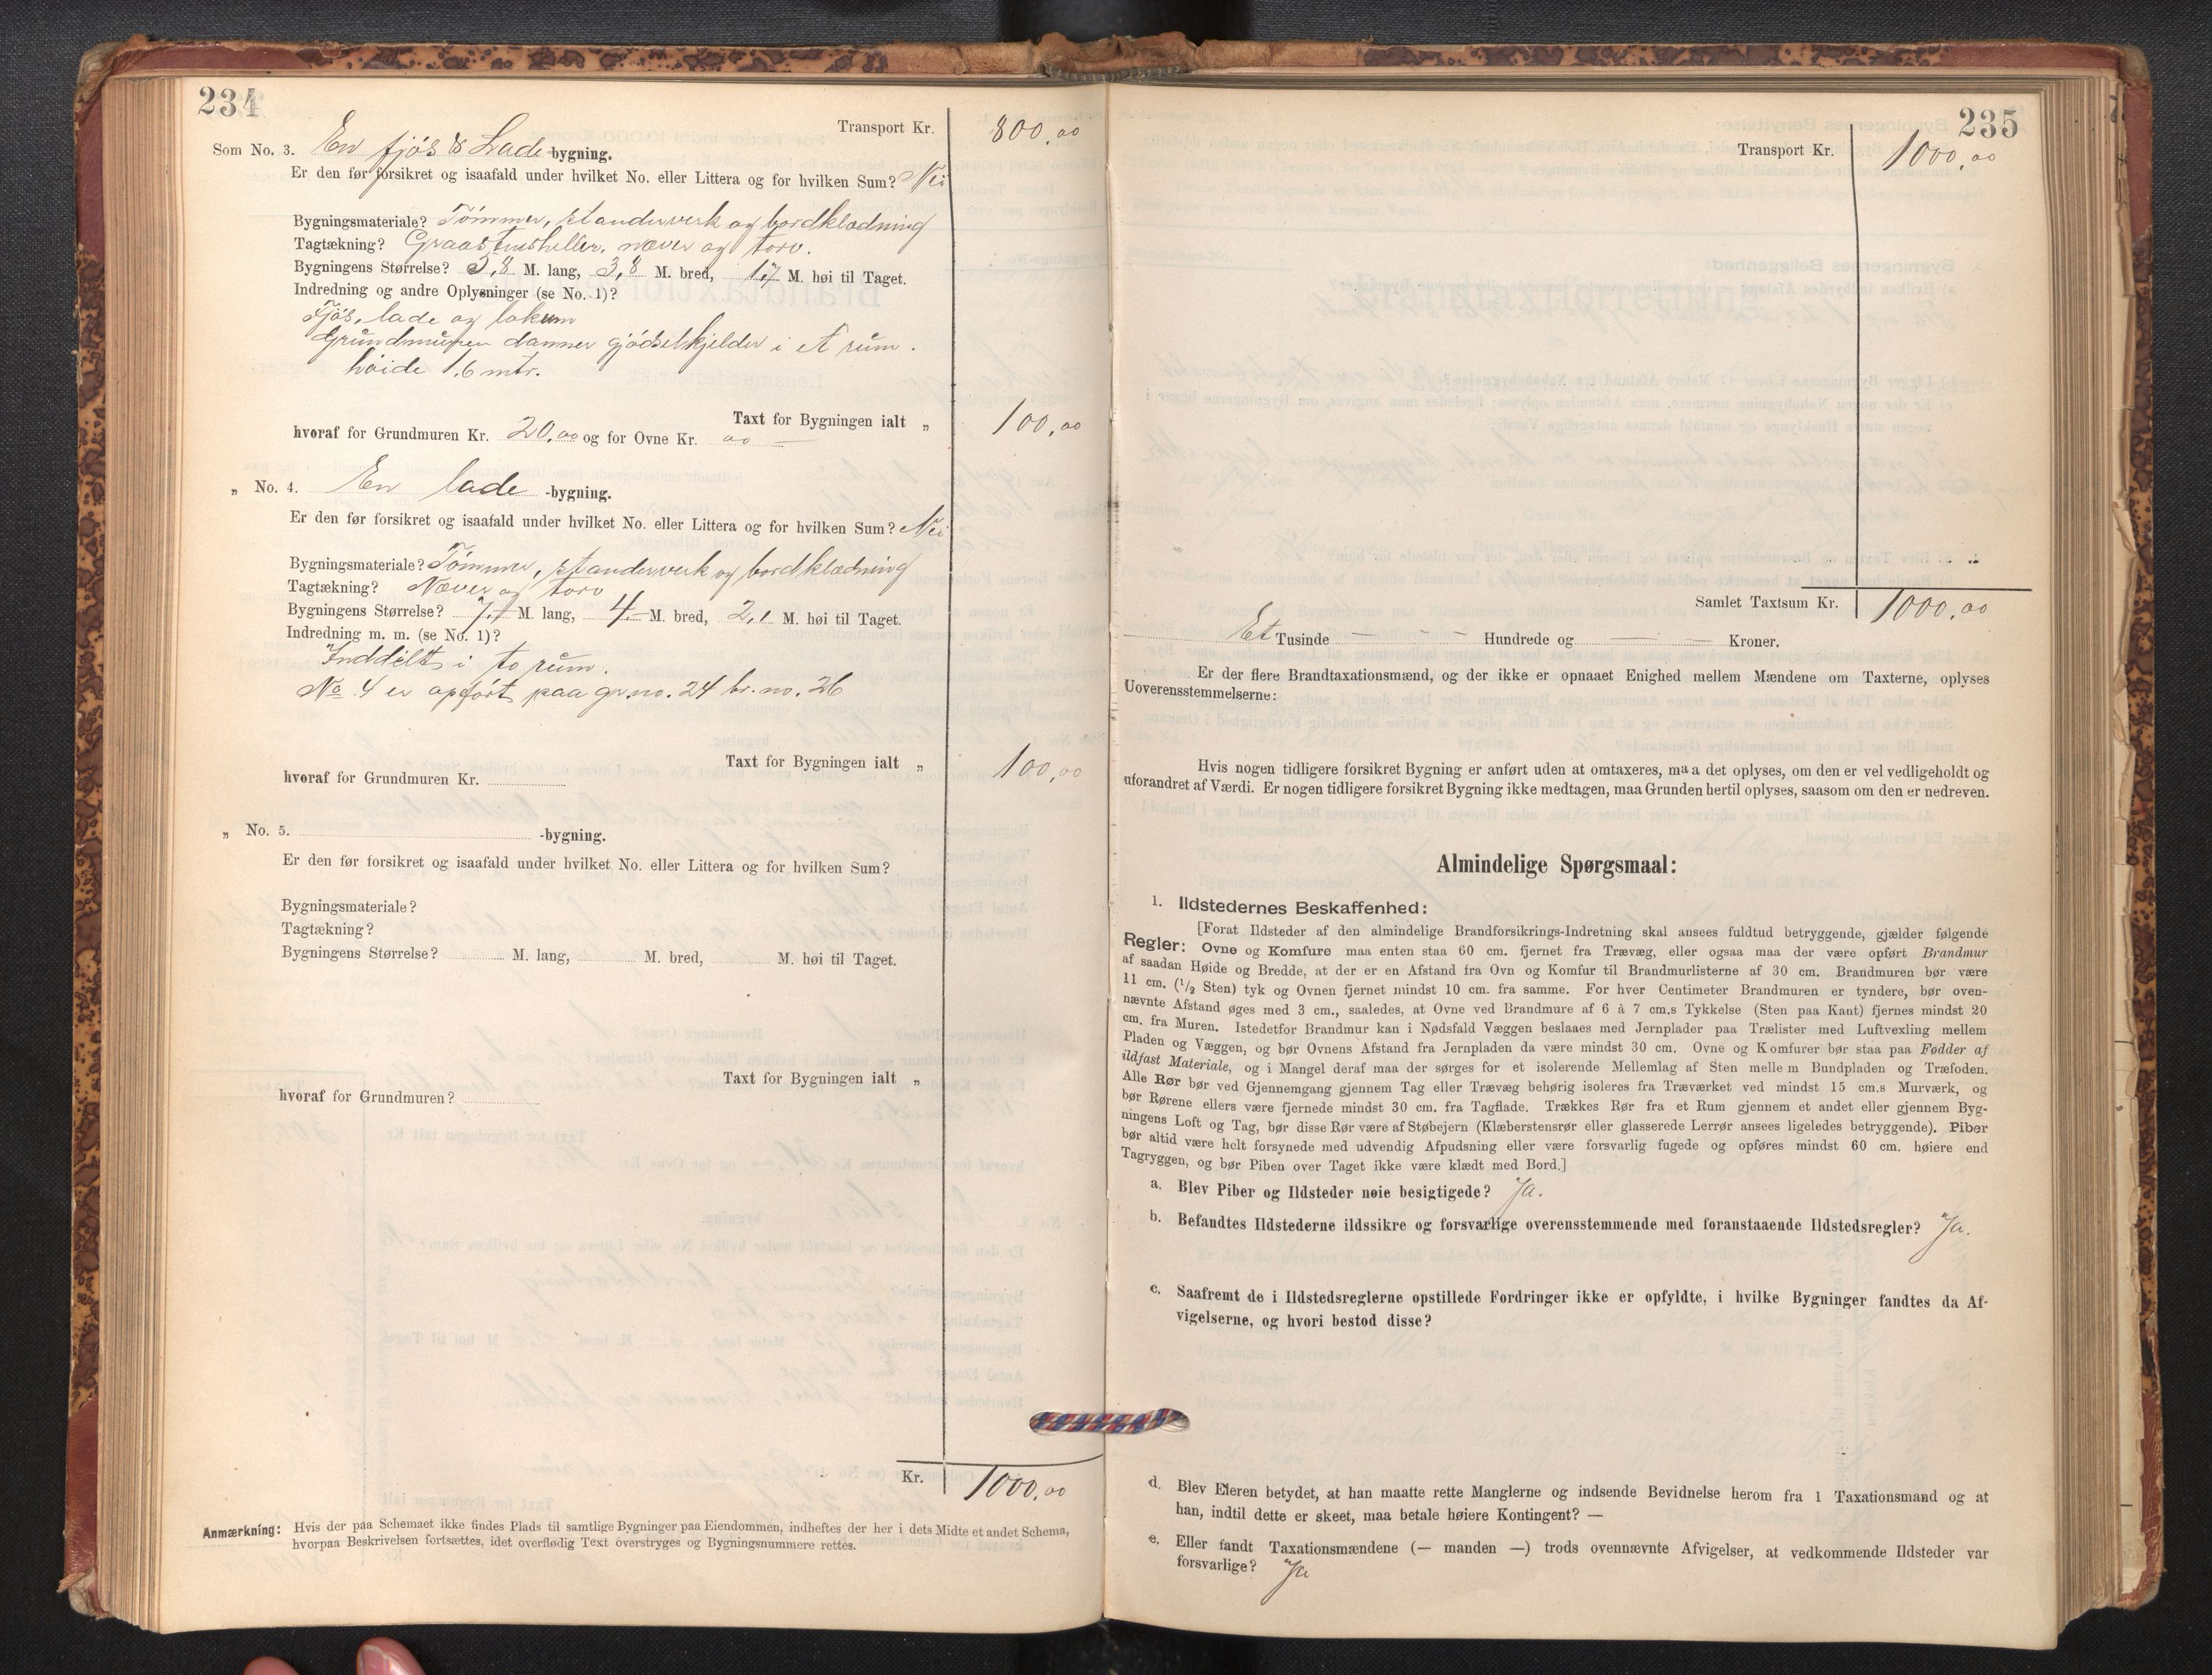 234
Transport Kr. 800,00
Som No. 3. En fjøs & Lade-bygning.
Er den før forsikret og isaafald under hvilket No. eller Littera og for hvilken Sum? Nei
Bygningsmateriale? Tömmer, standerverk og bordklædning
Tagtækning? Graastensheller, næver og torv.
Bygningens Størrelse? 5,8 M. lang, 3,8 M. bred, 1,7 M. høi til Taget.
Indredning og andre Oplysninger (se No. 1)?
Fjøs, lade og lokum
Grundmuren danner gjødselkjelder i et rum.
høide 1.6 mtr.
Taxt for Bygningen ialt „ 100,00
hvoraf for Grundmuren Kr. 20,00 og for Ovne Kr. 00 —
„ No. 4. En lade -bygning.
Er den før forsikret og isaafald under hvilket No. eller Littera og for hvilken Sum? Nei
Bygningsmateriale? Tömmer, standerverk og bordklædning
Tagtækning? Næver og torv
Bygningens Størrelse? 7,7 M. lang, 4,- M. bred, 2,1 M. høi til Taget.
Indredning m. m. (se No. 1)?
Inddelt i to rum.
No 4 er opført paa gr.no. 24 br.no. 26
Taxt for Bygningen ialt „ 100,00
hvoraf for Grundmuren Kr.
„ No. 5. -bygning.
Er den før forsikret og isaafald under hvilket No. eller Littera og for hvilken Sum?
Bygningsmateriale?
Tagtækning?
Bygningens Størrelse? M. lang, M. bred, M. høi til Taget.
Taxt for Bygningen ialt „
hvoraf for Grundmuren?
Kr. 1000,00
Anmærkning: Hvis der paa Schemaet ikke findes Plads til samtlige Bygninger paa Eiendommen, indheftes der her i dets Midte et andet Schema,
hvorpaa Beskrivelsen fortsættes, idet overflødig Text overstryges og Bygningsnummere rettes.
235
Transport Kr. 1000,00
Samlet Taxtsum Kr. 1000,00
Et Tusinde — — — Hundrede og — — Kroner.
Er der flere Brandtaxationsmænd, og der ikke er opnaaet Enighed mellem Mændene om Taxterne, oplyses
Uoverensstemmelserne:
Hvis nogen tidligere forsikret Bygning er anført uden at omtaxeres, maa det oplyses, om den er vel vedligeholdt og
uforandret af Værdi. Er nogen tidligere forsikret Bygning ikke medtagen, maa Grunden hertil oplyses, saasom om den er nedreven.
Almindelige Spørgsmaal:
1. Ildstedernes Beskaffenhed:
[Forat Ildsteder af den almindelige Brandforsikrings-Indretning skal ansees fuldtud betryggende, gjælder følgende
Regler: Ovne og Komfure maa enten staa 60 cm. fjernet fra Trævæg, eller ogsaa maa der være opført Brandmur
af saadan Høide og Bredde, at der er en Afstand fra Ovn og Komfur til Brandmurlisterne af 30 cm. Brandmuren bør være
11 cm. (1/2 Sten) tyk og Ovnen fjernet mindst 10 cm. fra samme. For hver Centimeter Brandmuren er tyndere, bør oven-
nævnte Afstand øges med 3 cm., saaledes, at Ovne ved Brandmure af 6 à 7 cm.s Tykkelse (Sten paa Kant) fjernes mindst 20
cm. fra Muren. Istedetfor Brandmur kan i Nødsfald Væggen beslaaes med Jernplader paa Trælister med Luftvexling mellem
Pladen og Væggen, og bør Ovnens Afstand fra Jernpladen da være mindst 30 cm. Ovne og Komfurer bør staa paa Fødder af
ildfast Materiale, og i Mangel deraf maa der sørges for et isolerende Mellemlag af Sten mellem Bundpladen og Træfoden.
Alle Rør bør ved Gjennemgang gjennem Tag eller Trævæg behørig isoleres fra Træværket ved mindst 15 cm.s Murværk, og
bør Rørene ellers være fjernede mindst 30 cm. fra Tagflade. Trækkes Rør fra et Rum gjennem et andet eller gjennem Byg-
ningens Loft og Tag, bør disse Rør være af Støbejern (Klæberstensrør eller glasserede Lerrør ansees ligeledes betryggende). Piber
bør altid være helt forsynede med udvendig Afpudsning eller være forsvarlig fugede og opføres mindst 60 cm. høiere end
Tagryggen, og bør Piben over Taget ikke være klædt med Bord.]
a. Blev Piber og Ildsteder nøie besigtigede? Ja.
b. Befandtes Ildstederne ildssikre og forsvarlige overensstemmende med foranstaaende Ildstedsregler? Ja.
c. Saafremt de i Ildstedsreglerne opstillede Fordringer ikke er opfyldte, i hvilke Bygninger fandtes da Af-
vigelserne, og hvori bestod disse?
d. Blev Eieren betydet, at han maatte rette Manglerne og indsende Bevidnelse herom fra 1 Taxationsmand og at
han, indtil dette er skeet, maa betale høiere Kontingent? —
e. Eller fandt Taxationsmændene (— manden —) trods ovennævnte Afvigelser, at vedkommende Ildsteder var
forsvarlige? Ja